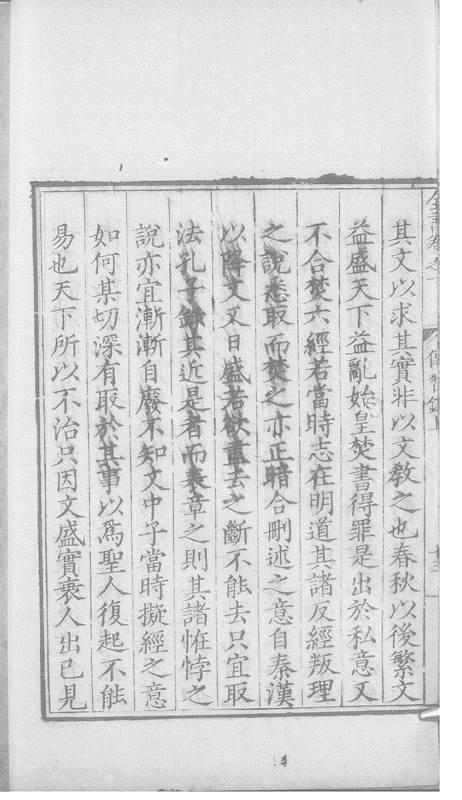 其文以求其實非以文教之也春秋以後繁文
益盛天下益亂始皇焚書得罪是出於私意又
不合焚六經若當時志在明道其諸反經叛理
之說悉取而焚之亦正暗合刪述之意自秦漢
以降文又日盛若欲盡去之斷不能去只宜取
法孔子錄其近是者而表章之則其諸恠悖之
說亦宜漸漸自廢不知文中子當時擬經之意
如何某切深有取於其事以爲聖人復起不能
易也天下所以不治只因文盛實衰人出己見